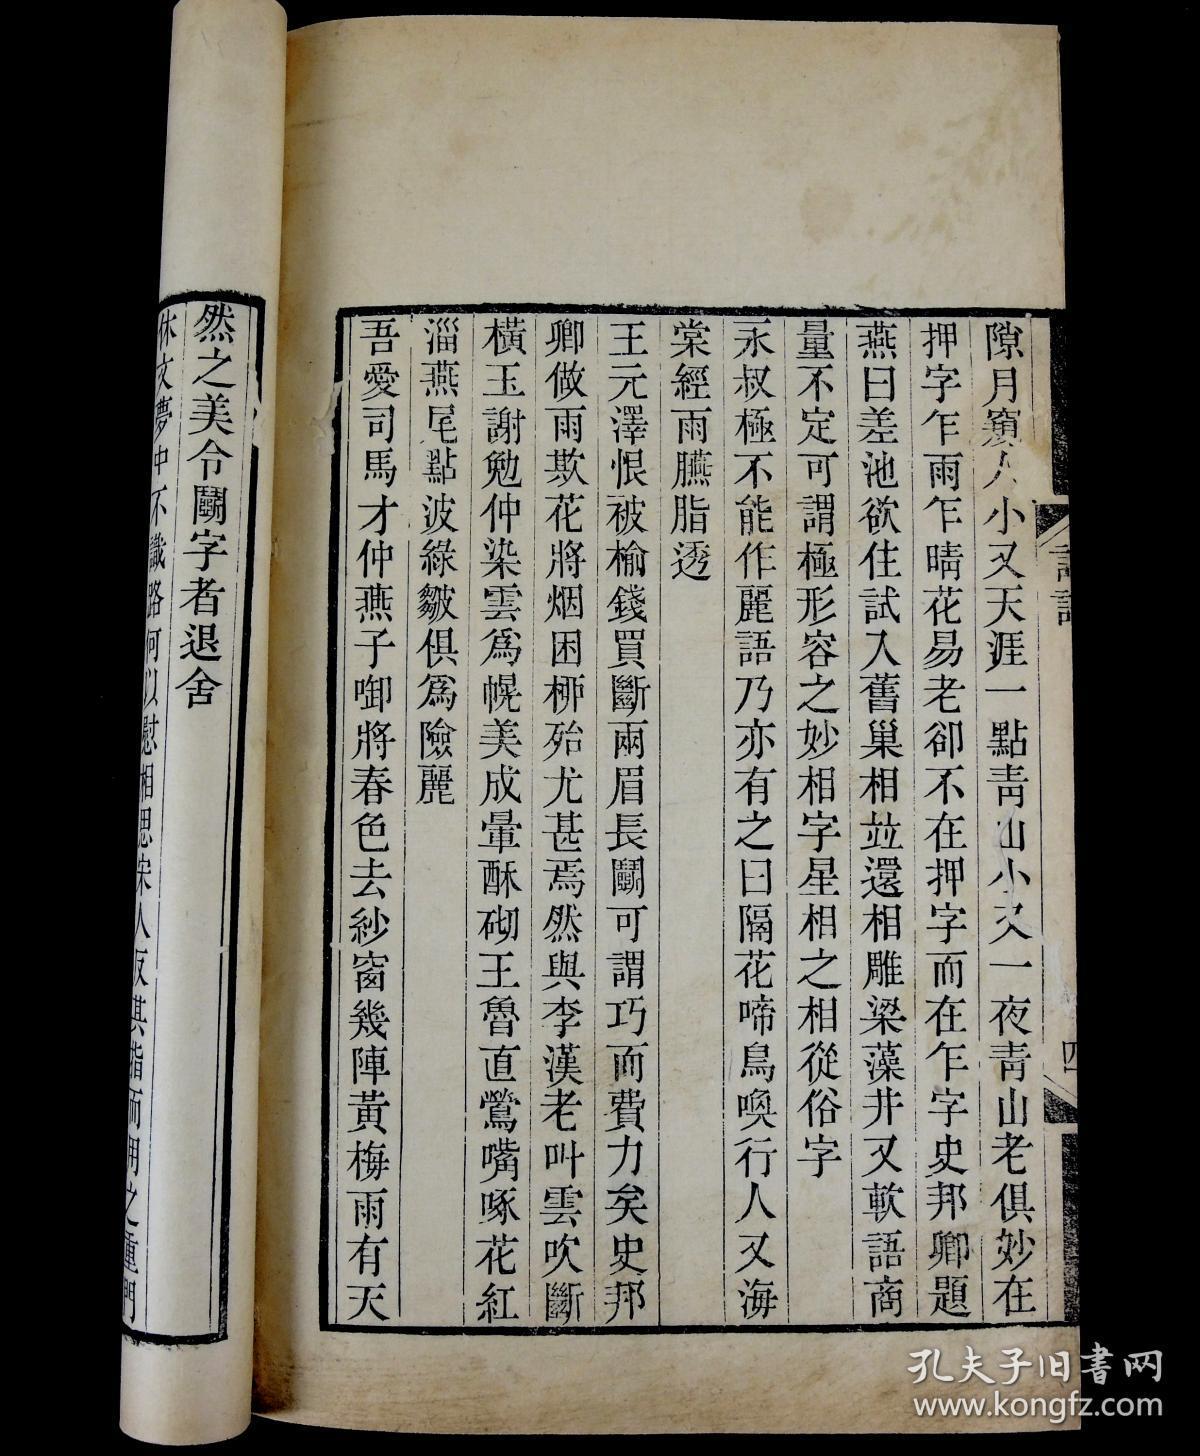 隙月窺人小又天涯一點靑山小又一夜靑山老俱妙在
押字乍雨乍晴花易老卻不在押字而在乍字史邦卿題
燕曰差池欲住試入舊巢相竝還相雕梁藻井又軟語商
量不定可謂極形容之妙相字星相之相從俗字
永叔極不能作麗語乃亦有之曰隔花啼鳥喚行人又海
棠經雨臙脂透
王元澤恨被榆錢買斷兩眉長鬭可謂巧而費力矣史邦
卿做雨欺花將烟困桺殆尤甚焉然與李漢老叫雲吹斷
橫玉謝勉仲染雲爲幌美成暈酥砌玉魯直鶯嘴啄花紅
溜燕尾點波綠皺俱爲險麗
吾愛司馬才仲燕子啣將春色去紗窗幾陣黃梅雨有天
然之美令鬭字者退舍
休文夢中不識路何以慰相思宋人反其指而用之重門
四
孔夫子旧書网
www.kongfz.com